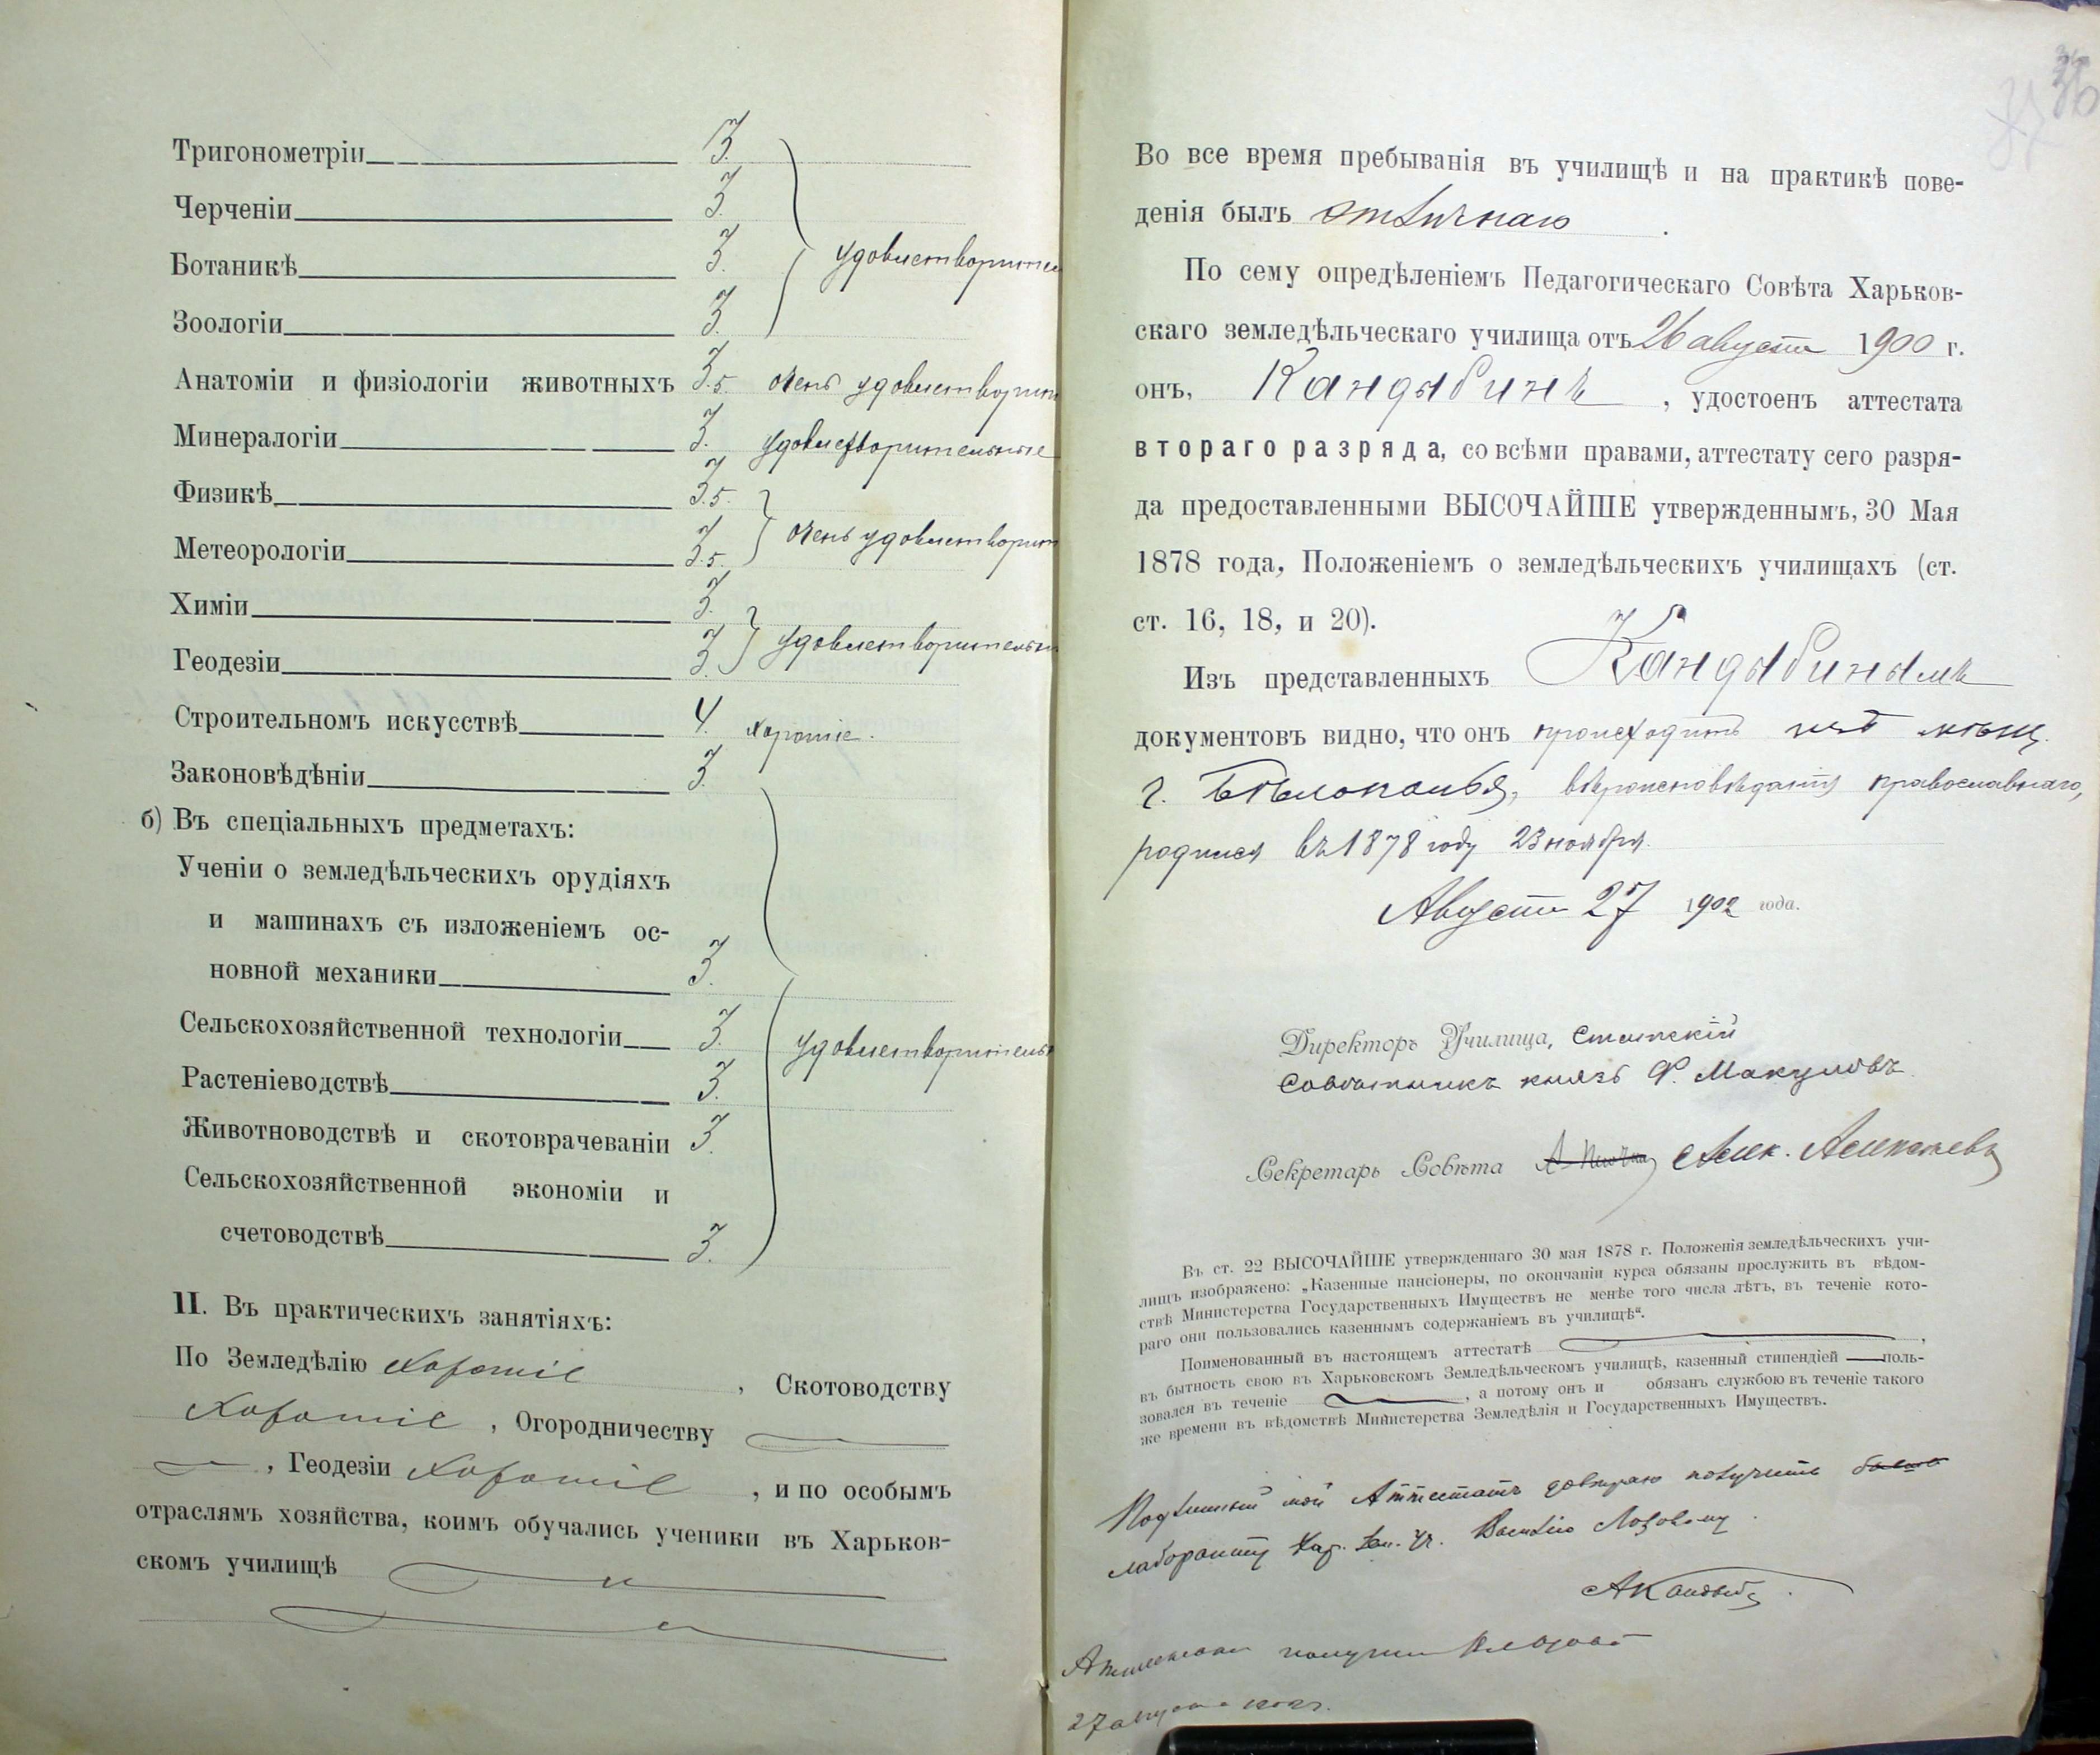 Тригонометріи 3.
Черченіи 3.
Ботаникѣ 3. удовлетворител
Зоологіи 3.
Анатоміи и физіологіи животныхъ 3.5 очень удовлетворит
Минералогіи 3. удовлетворительные
Физикѣ 3.5.
Метеорологіи 3.5. очень удовлетворит
Химіи 3.
Геодезіи 3. удовлетворительн
Строительномъ искусствѣ 4. хорошіе.
Законовѣдѣніи 3.
б) Въ спеціальныхъ предметахъ:
Ученіи о земледѣльческихъ орудіяхъ
и машинахъ съ изложеніемъ ос-
новной механики 3.
Сельскохозяйственной технологіи 3. удовлетворительн
Растеніеводствѣ 3.
Животноводствѣ и скотоврачеваніи 3.
Сельскохозяйственной экономіи и
счетоводствѣ 3.
II. Въ практическихъ занятіяхъ:
По Земледѣлію хорошіе, Скотоводству
хорошіе, Огородничеству
, Геодезіи хорошіе, и по особымъ
отраслямъ хозяйства, коимъ обучались ученики въ Харьков-
скомъ училищѣ
36
37
Во все время пребыванія въ училищѣ и на практикѣ пове-
денія былъ отличнаго.
По сему опредѣленіемъ Педагогическаго Совѣта Харьков-
скаго земледѣльческаго училища отъ 26 августа 1900 г.
онъ, Кандыбинъ, удостоенъ аттестата
втораго разряда, со всѣми правами, аттестату сего разря-
да предоставленными ВЫСОЧАЙШЕ утвержденнымъ, 30 Мая
1878 года, Положеніемъ о земледѣльческихъ училищахъ (ст.
ст. 16, 18, и 20).
Изъ представленныхъ Кандыбинымъ
документовъ видно, что онъ происходитъ изъ мѣщ.
г. Бѣлополья, вѣроисповѣданія православнаго,
родился въ 1878 году 23 ноября.
Августа 27 1902 года.
Директоръ Училища, Статскій
Совѣтникъ князь Ф. Макуловъ
Секретарь Совѣта Алек. Алексѣевъ
Въ ст. 22 ВЫСОЧАЙШЕ утвержденнаго 30 мая 1878 г. Положенія земледѣльческихъ учи-
лищъ изображено: „Казенные пансіонеры, по окончаніи курса обязаны прослужить въ вѣдом-
ствѣ Министерства Государственныхъ Имуществъ не менѣе того числа лѣтъ, въ теченіе кото-
раго они пользовались казеннымъ содержаніемъ въ училищѣ“.
Поименованный въ настоящемъ аттестатѣ ,
въ бытность свою въ Харьковскомъ Земледѣльческомъ училищѣ, казенный стипендіей поль-
зовался въ теченіе , а потому онъ и обязанъ службою въ теченіе такого
же времени въ вѣдомствѣ Министерства Земледѣлія и Государственныхъ Имуществъ.
Подлинный мой Аттестатъ довѣряю получить
лаборанту Хар. Зем. Уч. Василію Лозовому.
А Кандыб
Аттестат получил В Лозовой
27 августа 1902 г.